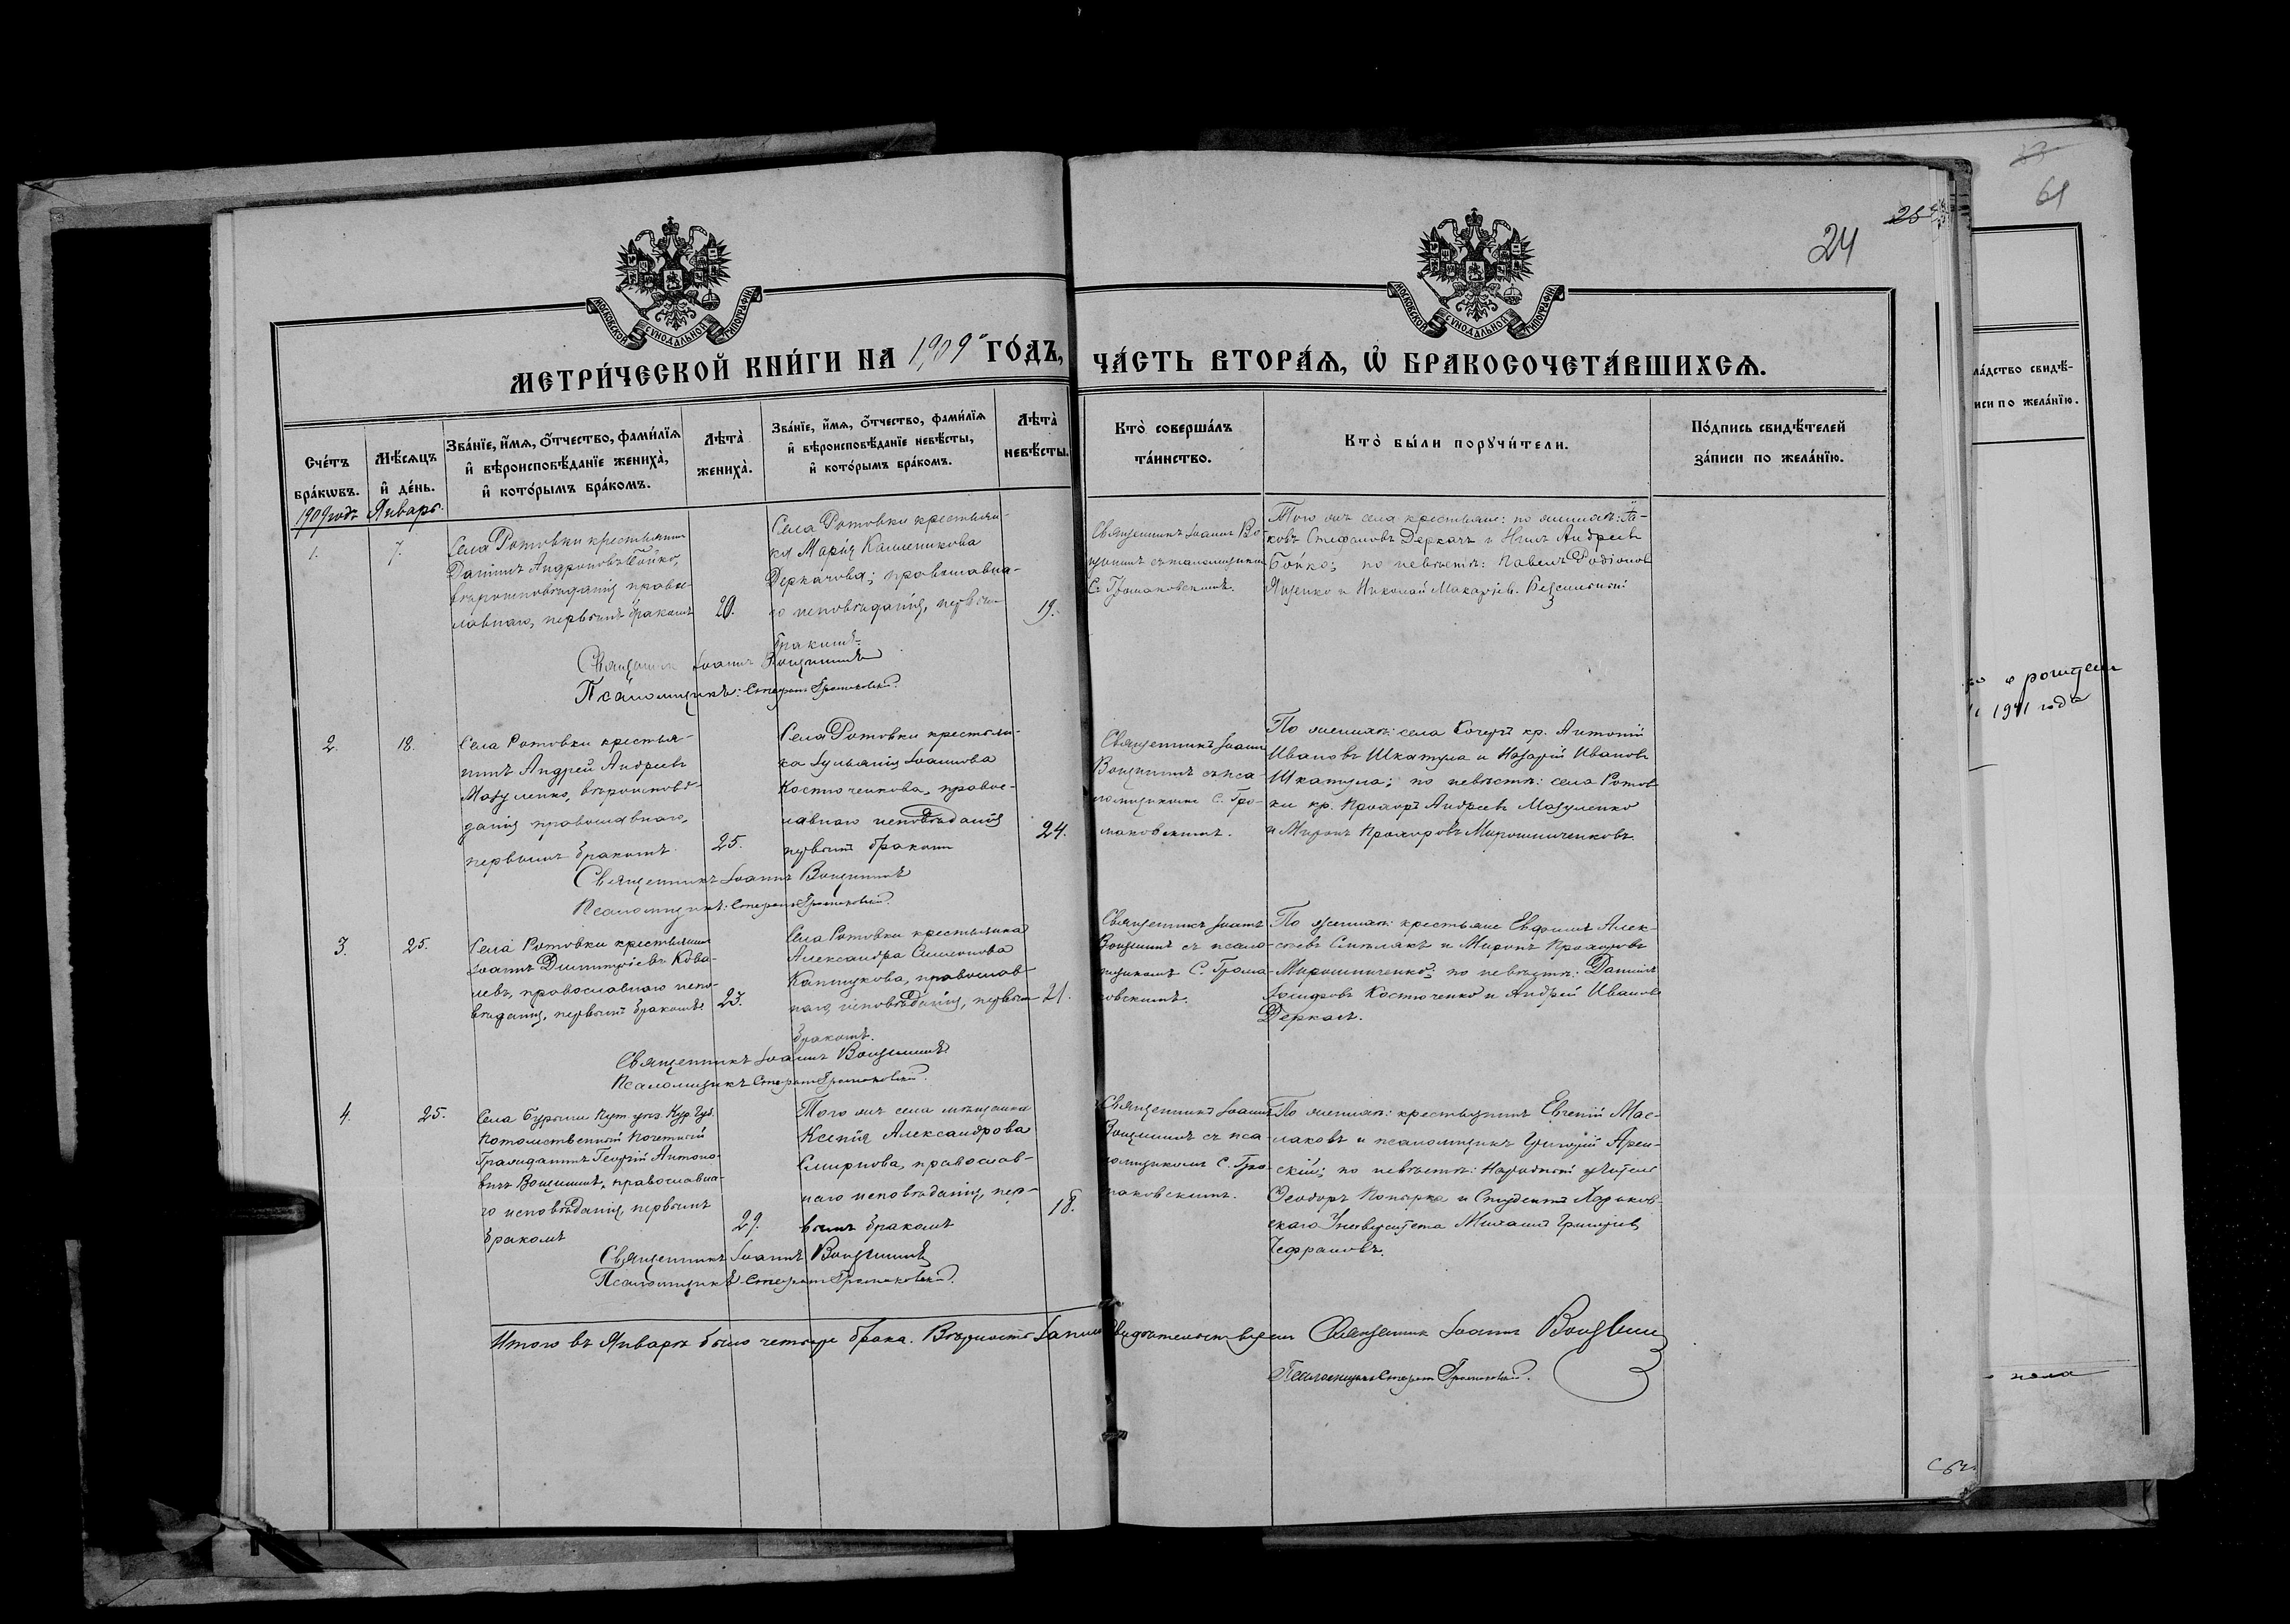 24
МОСКОВСКОЙ СѴНОДАЛЬНОЙ ТИПОГРАФІИ
МОСКОВСКОЙ СѴНОДАЛЬНОЙ ТИПОГРАФІИ
МЕТРИ́ЧЕСКОЙ КНИ́ГИ НА 1909 ГО́ДЪ, ЧА́СТЬ ВТОРА́Ѧ, Ѽ БРАКОСОЧЕТА́ВШИХСѦ.
Сче́тъ бра́кѡвъ.
Мѣ́сѧцъ и҆ де́нь.
Зва́нїе, и҆́мѧ, ѻ҆́тчество, фами́лїѧ
и҆ вѣроисповѣ́данїе жениха̀,
и҆ кото́рымъ бра́комъ.
Лѣта̀ жениха̀.
Зва́нїе, и҆́мѧ, ѻ҆́тчество, фами́лїѧ
и҆ вѣроисповѣ́данїе невѣ́сты,
и҆ кото́рымъ бра́комъ.
Лѣта̀ невѣ́сты.
Кто̀ соверша́лъ
та́инство.
Кто̀ бы́ли порꙋчи́тели.
По́дпись свидѣ́телей
за́писи по жела́нїю.
1909 годъ Январь.
1.
7.
Села Ротовки крестьянинъ
Даніилъ Андроновъ Бойко,
вѣроисповѣданія правос-
лавнаго, первымъ бракомъ
20.
Села Ротовки крестьян-
ка Марія Каленикова
Деркачова; православна-
го исповѣданія, первымъ
бракомъ.
19.
Священникъ Іоаннъ Во-
щининъ съ псаломщикомъ
С. Громаковскимъ.
Того же села крестьяне: по женихѣ: Іа-
ковъ Стефановъ Деркачъ и Нилъ Андреевъ
Бойко; по невѣстѣ: Павелъ Родіоновъ
Яценко и Николай Макаріев.
Священникъ Іоаннъ Вощининъ
Псаломщикъ: Стефанъ Громаковскій.
2.
18.
Села Ротовки крестья-
нинъ Андрей Андреевъ
Мазуленко, вѣроисповѣ-
данія православнаго,
первымъ бракомъ
25.
Села Ротовки крестьян-
ка Іуліанія Іоаннова
Костюченкова, правос-
лавнаго исповѣданія
первымъ бракомъ
24.
Священникъ Іоаннъ
Вощининъ съ пса-
ломщикомъ С. Гро-
маковскимъ.
По женихѣ: села кр. Антоній
Ивановъ Шкатула и Назарій Ивановъ
Шкатула; по невѣстѣ: села Ротов-
ки кр. Прохоръ Андреевъ Мазуленко
и Миронъ Прохоровъ Мирошниченковъ.
Священникъ Іоаннъ Вощининъ
Псаломщикъ: Стефанъ Громаковскій.
3.
25.
Села Ротовки крестьянинъ
Іоаннъ Димитріевъ Кова-
левъ, православнаго испо-
вѣданія, первымъ бракомъ
23.
Села Ротовки крестьянка
Александра Симеонова
православ-
наго исповѣданія, первымъ
бракомъ.
21.
Священникъ Іоаннъ
Вощининъ съ псало-
мщикомъ С. Грома-
ковскимъ.
По женихѣ: крестьяне Евфимъ Алек-
сѣевъ и Миронъ Прохоровъ
Мирошниченко; по невѣстѣ: Даніилъ
Іосифовъ Костюченко и Андрей Ивановъ
Деркачъ.
Священникъ Іоаннъ Вощининъ
Псаломщикъ Стефанъ Громаковскій.
4.
25.
Села Бурыни Пут. уѣз. Кур. губ.
Потомственный Почетный
Гражданинъ Георгій Антоно-
вичъ Вощининъ, православна-
го исповѣданія, первымъ
бракомъ
29.
Того же села мѣщанка
Ксенія Александрова
Смирнова, православ-
наго исповѣданія, пер-
вымъ бракомъ
18.
Священникъ Іоаннъ
Вощининъ съ пса-
ломщикомъ С. Гро-
маковскимъ.
По женихѣ: крестьянинъ Евгеній Мас-
лаковъ и псаломщикъ Григорій Арен-
скій; по невѣстѣ: Народный учитель
Ѳеодоръ Копырка и Студентъ Харьков-
скаго Университета Михаилъ Григоріевъ
Чефрановъ.
Священникъ Іоаннъ Вощининъ
Псаломщикъ Стефанъ Громаковскій.
Итого въ Январѣ было четыре брака. Вѣрность записи свидѣтельствуемъ Священникъ Іоаннъ Вощининъ
Псаломщикъ Стефанъ Громаковскій.
61
1911 года